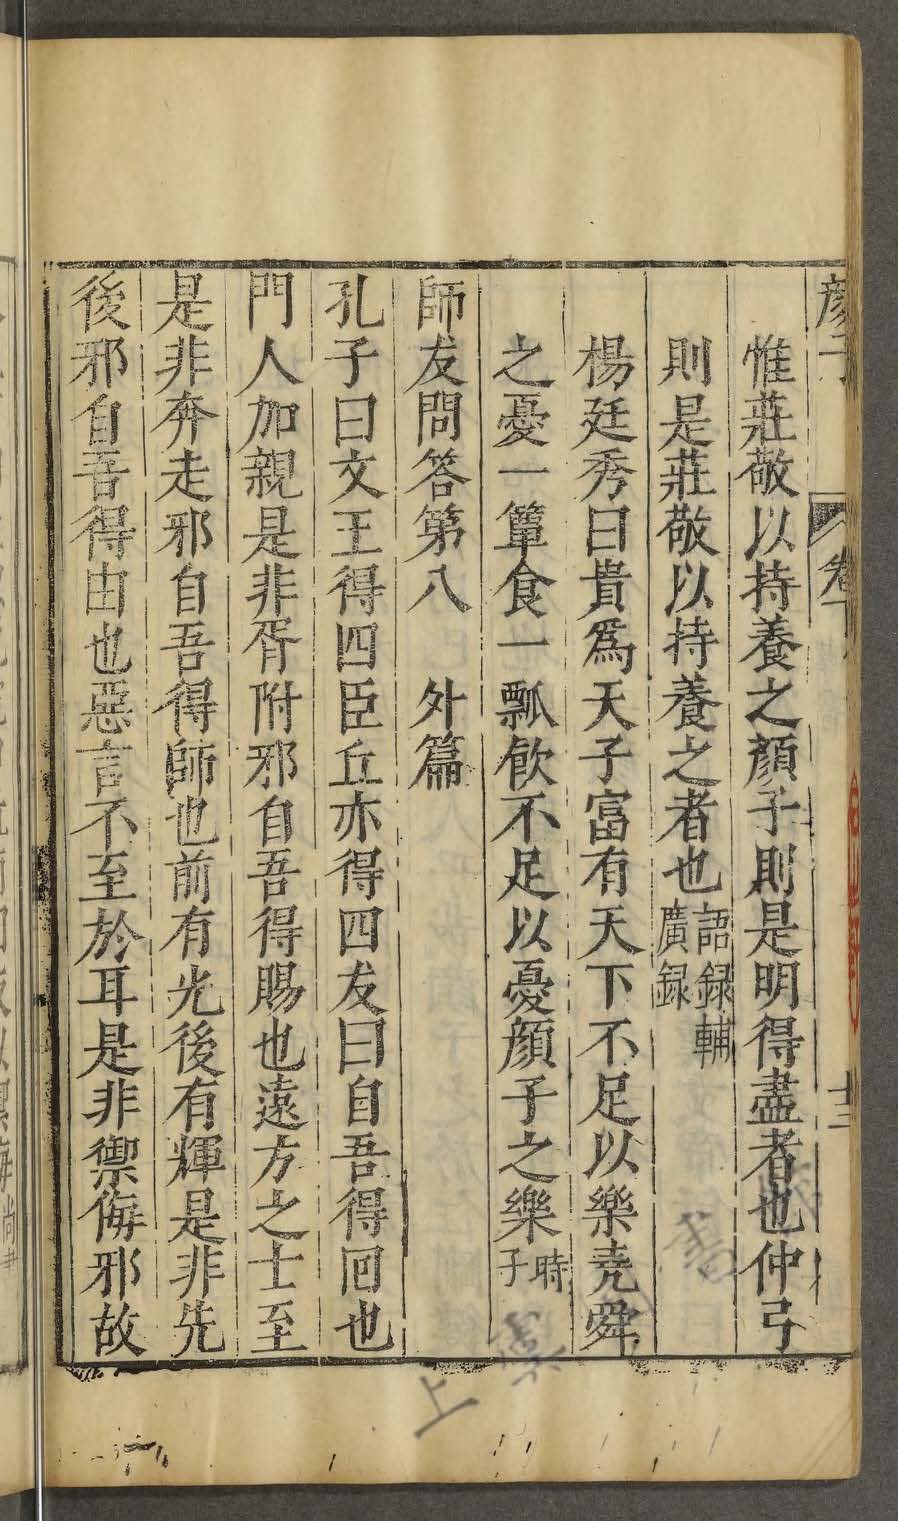 顔子 卷一 廿三
惟莊敬以持養之顏子則是明得盡者也仲弓
則是莊敬以持養之者也語録輔廣録
楊廷秀曰貴爲天子富有天下不足以樂堯舜
之憂一簞食一瓢飲不足以憂顏子之樂時子
師友問答第八 外篇
孔子曰文王得四臣丘亦得四友曰自吾得回也
門人加親是非胥附邪自吾得賜也遠方之士至
是非奔走邪自吾得師也前有光後有輝是非先
後邪自吾得由也惡言不至於耳是非禦侮邪故
上